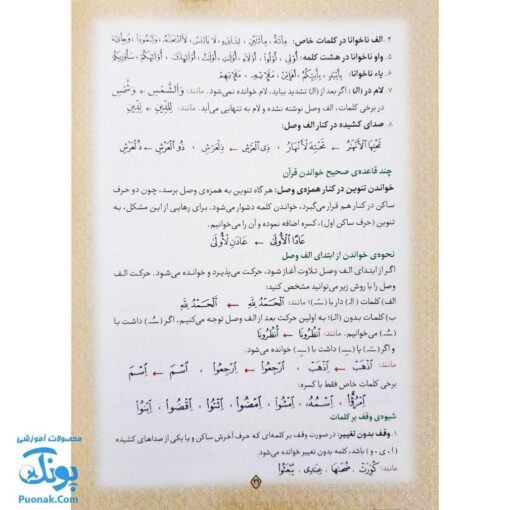 ۴. الف ناخوانا در کلمات خاص: مِائَةُ ، مِائَتَيْنِ ، لِشَاْىْءٍ ، لَا تَاْيْئَسُ ، لَأَاذْبَحَنَّهُ ، وَثَمُودَا ، وَجِاىءَ
۵. واو ناخوانا در هشت کلمه: أُوْلِي ، أُوْلُوا ، أُوْلَاءِ ، أُوْلَاتُ ، أُوْلَٰئِكَ ، أُوْلَٰئِكُمْ ، سَأُوْرِيكُمْ
۶. یاء ناخوانا: بِأَيْيْدٍ ، بِأَيِّيكُمْ ، أَفَإِيْنْ ، مَلَإِيْهِ ، مَلَإِيْهِمْ
۷. لام در (الـ) : اگر بعد از (الـ) تشدید بیاید، لام خوانده نمی‌شود. مانند: وَالشَّمْسِ ← وَشَّمْسِ
در برخی کلمات، الف وصل نوشته نشده و لام به تنهایی می‌آید. مانند: لِلَّذِينَ ← لِلَّذِينَ
۸. صدای کشیده در کنار الف وصل:
تَحْتِهَا الْأَنْهَارُ ← تَحْتِهَ لْأَنْهَارُ ، ذِی الْعَرْشِ ← ذِلْعَرْشِ ، ذُو الْعَرْشِ ← ذُلْعَرْشِ
چند قاعده‌ی صحیح خواندن قرآن
خواندن تنوین در کنار همزه‌ی وصل: هرگاه تنوین به همزه‌ی وصل برسد، چون دو حرف
ساکن در کنار هم قرار می‌گیرد، خواندن کلمه دشوار می‌شود. برای رهایی از این مشکل، به
تنوین (حرف ساکن اول)، کسره اضافه نموده و آن را می‌خوانیم.
عَادًا الْأُولَىٰ ← عَادَنِ لْأُولَىٰ
نحوه‌ی خواندن از ابتدای الف وصل
اگر از ابتدای الف وصل تلاوت آغاز شود، حرکت می‌پذیرد و خوانده می‌شود. حرکت الف
وصل را با روش زیر می‌توانید مشخص کنید:
الف) کلمات (الـ) دار با (ـَـ)؛ مانند: الْحَمْدُ لِلَّهِ ← اَلْحَمْدُ لِلَّهِ
ب) کلمات بدون (الـ)؛ به اولین حرکت بعد از الف وصل توجه می‌کنیم، اگر (ـُـ) داشت با
(ـُـ) می‌خوانیم. مانند: انْظُرُونَا ← اُنْظُرُونَا
و اگر (ـَـ) یا (ـِـ) داشت با (ـِـ) خوانده می‌شود.
مانند: اذْهَبْ ← اِذْهَبْ ، ارْجِعُوا ← اِرْجِعُوا ، اسْمَ ← اِسْمَ
برخی کلمات خاص فقط با کسره:
اِمْرُؤٌا ، اِسْمُهُ ، اِمْشُوا ، اِمْضُوا ، اِئْتُوا ، اِقْضُوا ، اِبْنُوا
شیوه‌ی وقف بر کلمات
۱. وقف بدون تغییر: در صورت وقف بر کلمه‌ای که حرف آخرش ساکن و یا یکی از صداهای کشیده
(ا ، ی ، و) باشد، کلمه بدون تغییر خوانده می‌شود.
مانند: كُوِّرَتْ ، ضُحَىٰهَا ، عِنْدِي ، يُبْعَثُوا
محصولات آموزشی
پونک
Puonak.Com